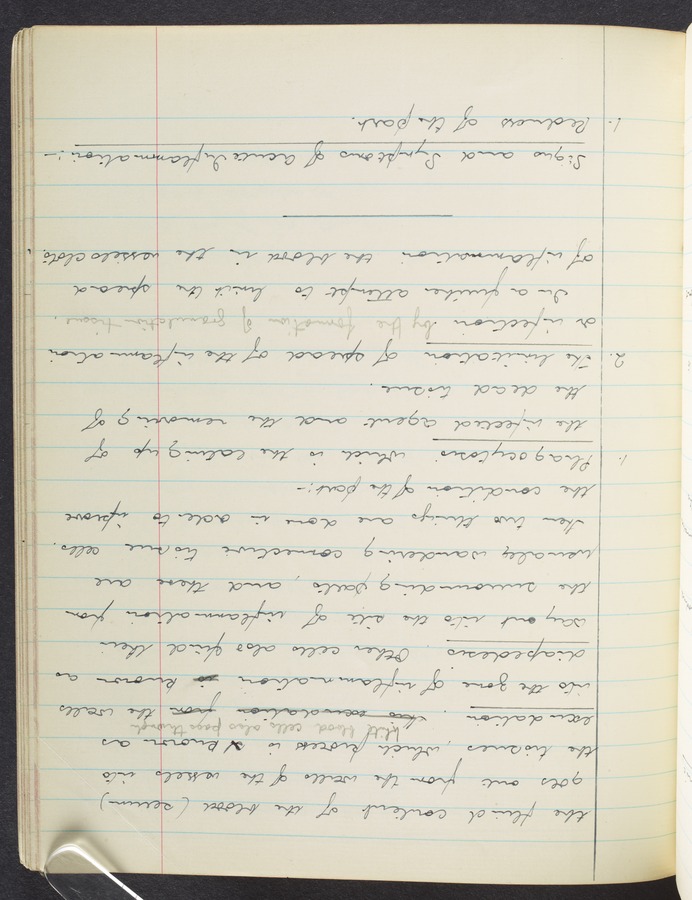 the fluid content of the blood (serum)
goes out from the walls of the vessels into
the tissues, which process is known as
exudation. the exudation from the walls
White blood cells also pass through
into the zone of inflammation is known as
diapedesis. Other cells also find their
way out into the site of inflammation from
the surrounding parts, and these are
usually wandering connective tissue cells.
then two things are done in order to improve
the condition of the part:-
1. Phagocytosis which is the eating up of
the infected agent and the removing of
the dead tissue.
2. The limitation of spread of the inflammation
or infection by the formation of granulation tissue.
In a further attempt to limit the spread
of inflammation the blood in the vessels clots.
Signs and Symptoms of acute Inflammation:-
1. Redness of the part.